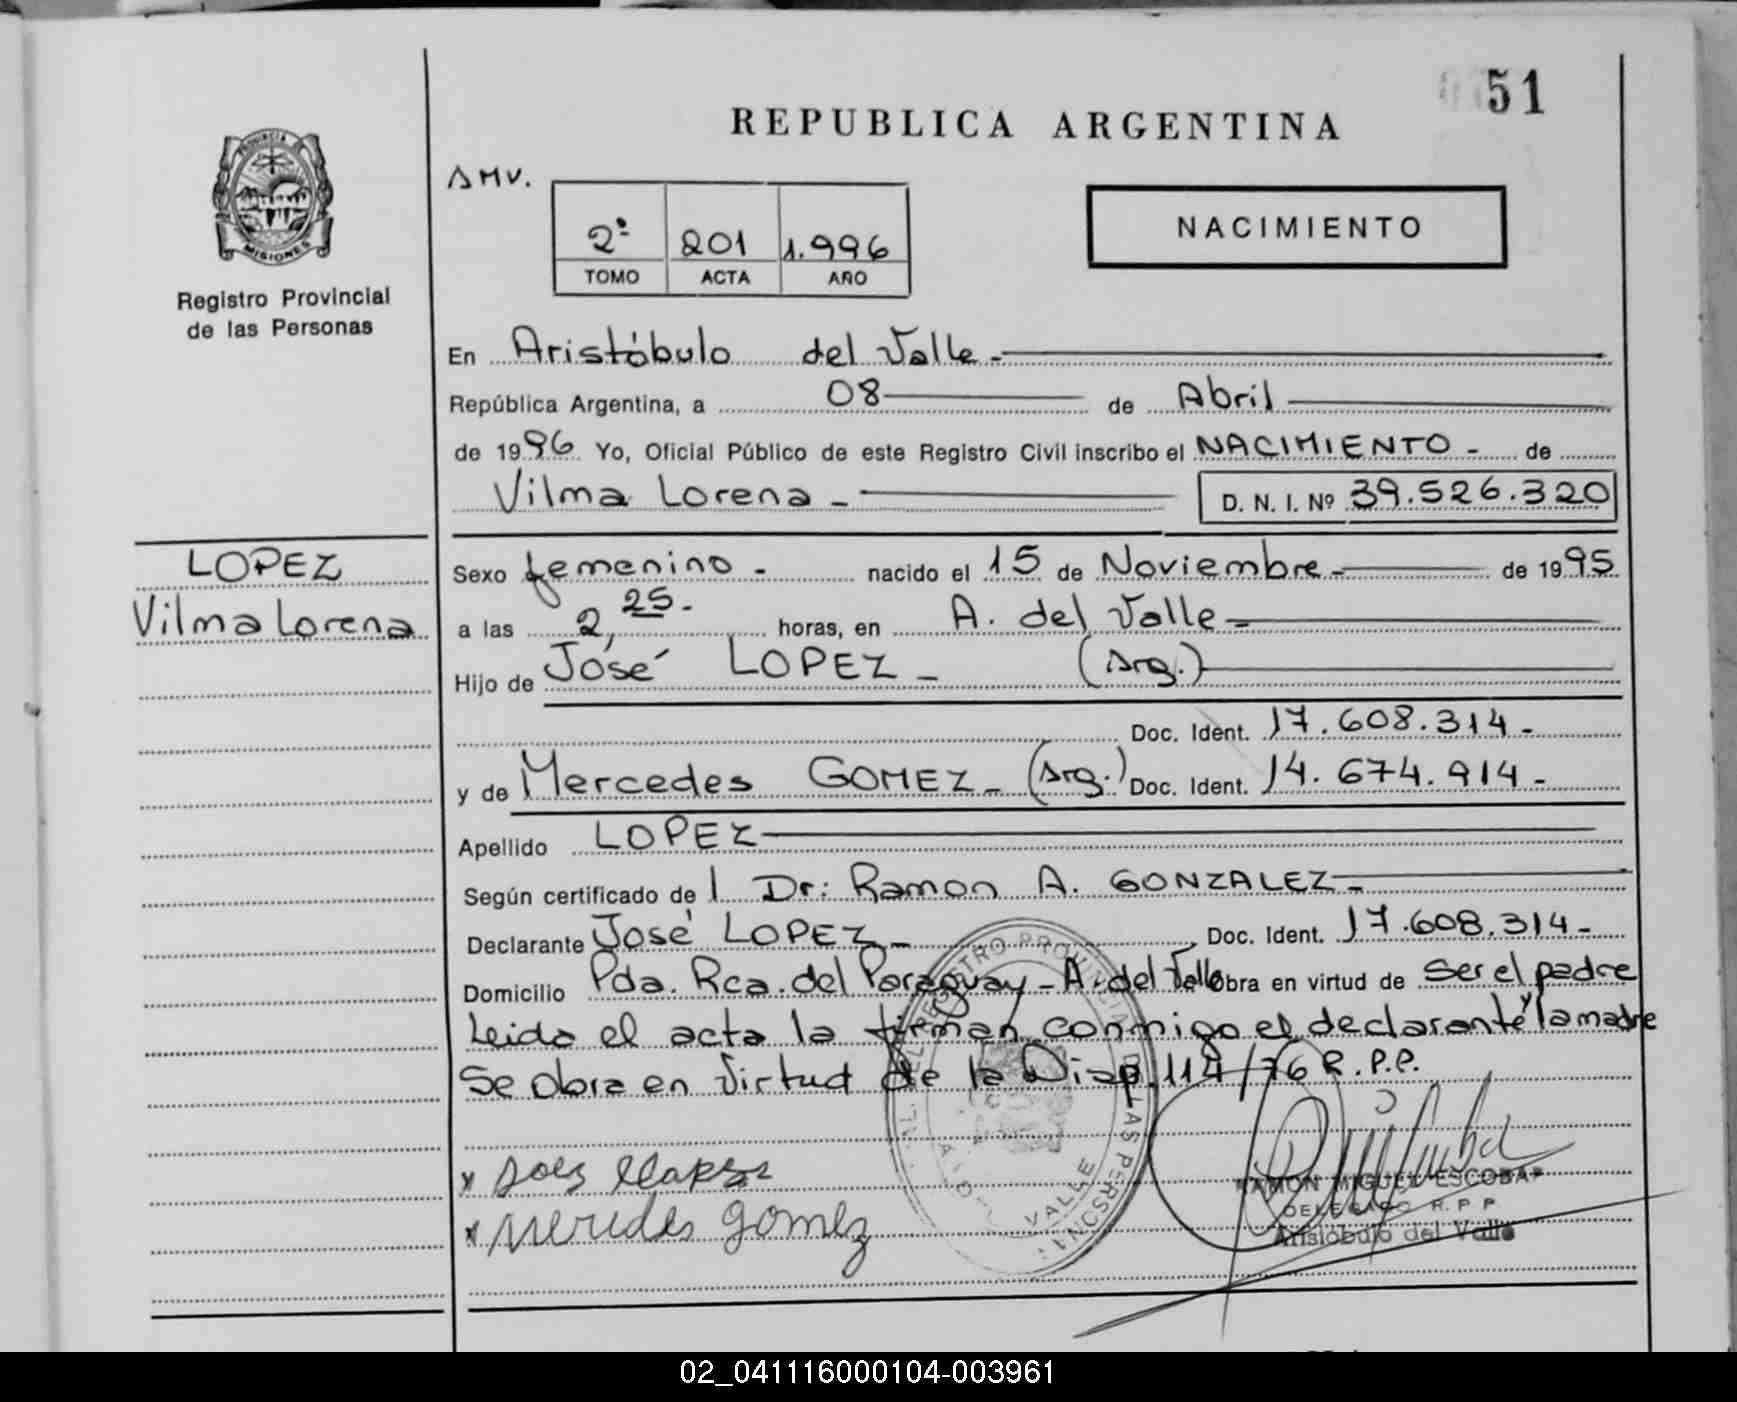 51
REPUBLICA ARGENTINA
AMV.
PROVINCIA
MISIONES
2º 201 1.996
TOMO ACTA AÑO
NACIMIENTO
Registro Provincial
de las Personas
En Aristóbulo del Valle -
República Argentina, a 08 de Abril
de 1996 Yo, Oficial Público de este Registro Civil inscribo el NACIMIENTO - de
Vilma Lorena - D. N. I. Nº 39.526.320
LOPEZ
Vilma Lorena
Sexo femenino - nacido el 15 de Noviembre - de 1995
a las 2,25- horas, en A. del Valle -
Hijo de José LOPEZ - (Arg.)
Doc. Ident. 17.608.314-
y de Mercedes GOMEZ - (Arg.) Doc. Ident. 14.674.914-
Apellido LOPEZ
Según certificado de l Dr: Ramon A. GONZALEZ -
Declarante José LOPEZ - Doc. Ident. 17.608.314-
Domicilio Pda. Rca. del Paraguay - A. del Valle Obra en virtud de ser el padre
Leida el acta la firman conmigo el declarante y la madre
Se obra en virtud de la Disp. 114/76 R.P.P.
x
x Mercedes Gomez
RAMON MIGUEL ESCOBAR
DELEGADO R. P. P.
Aristóbulo del Valle
02_041116000104-003961